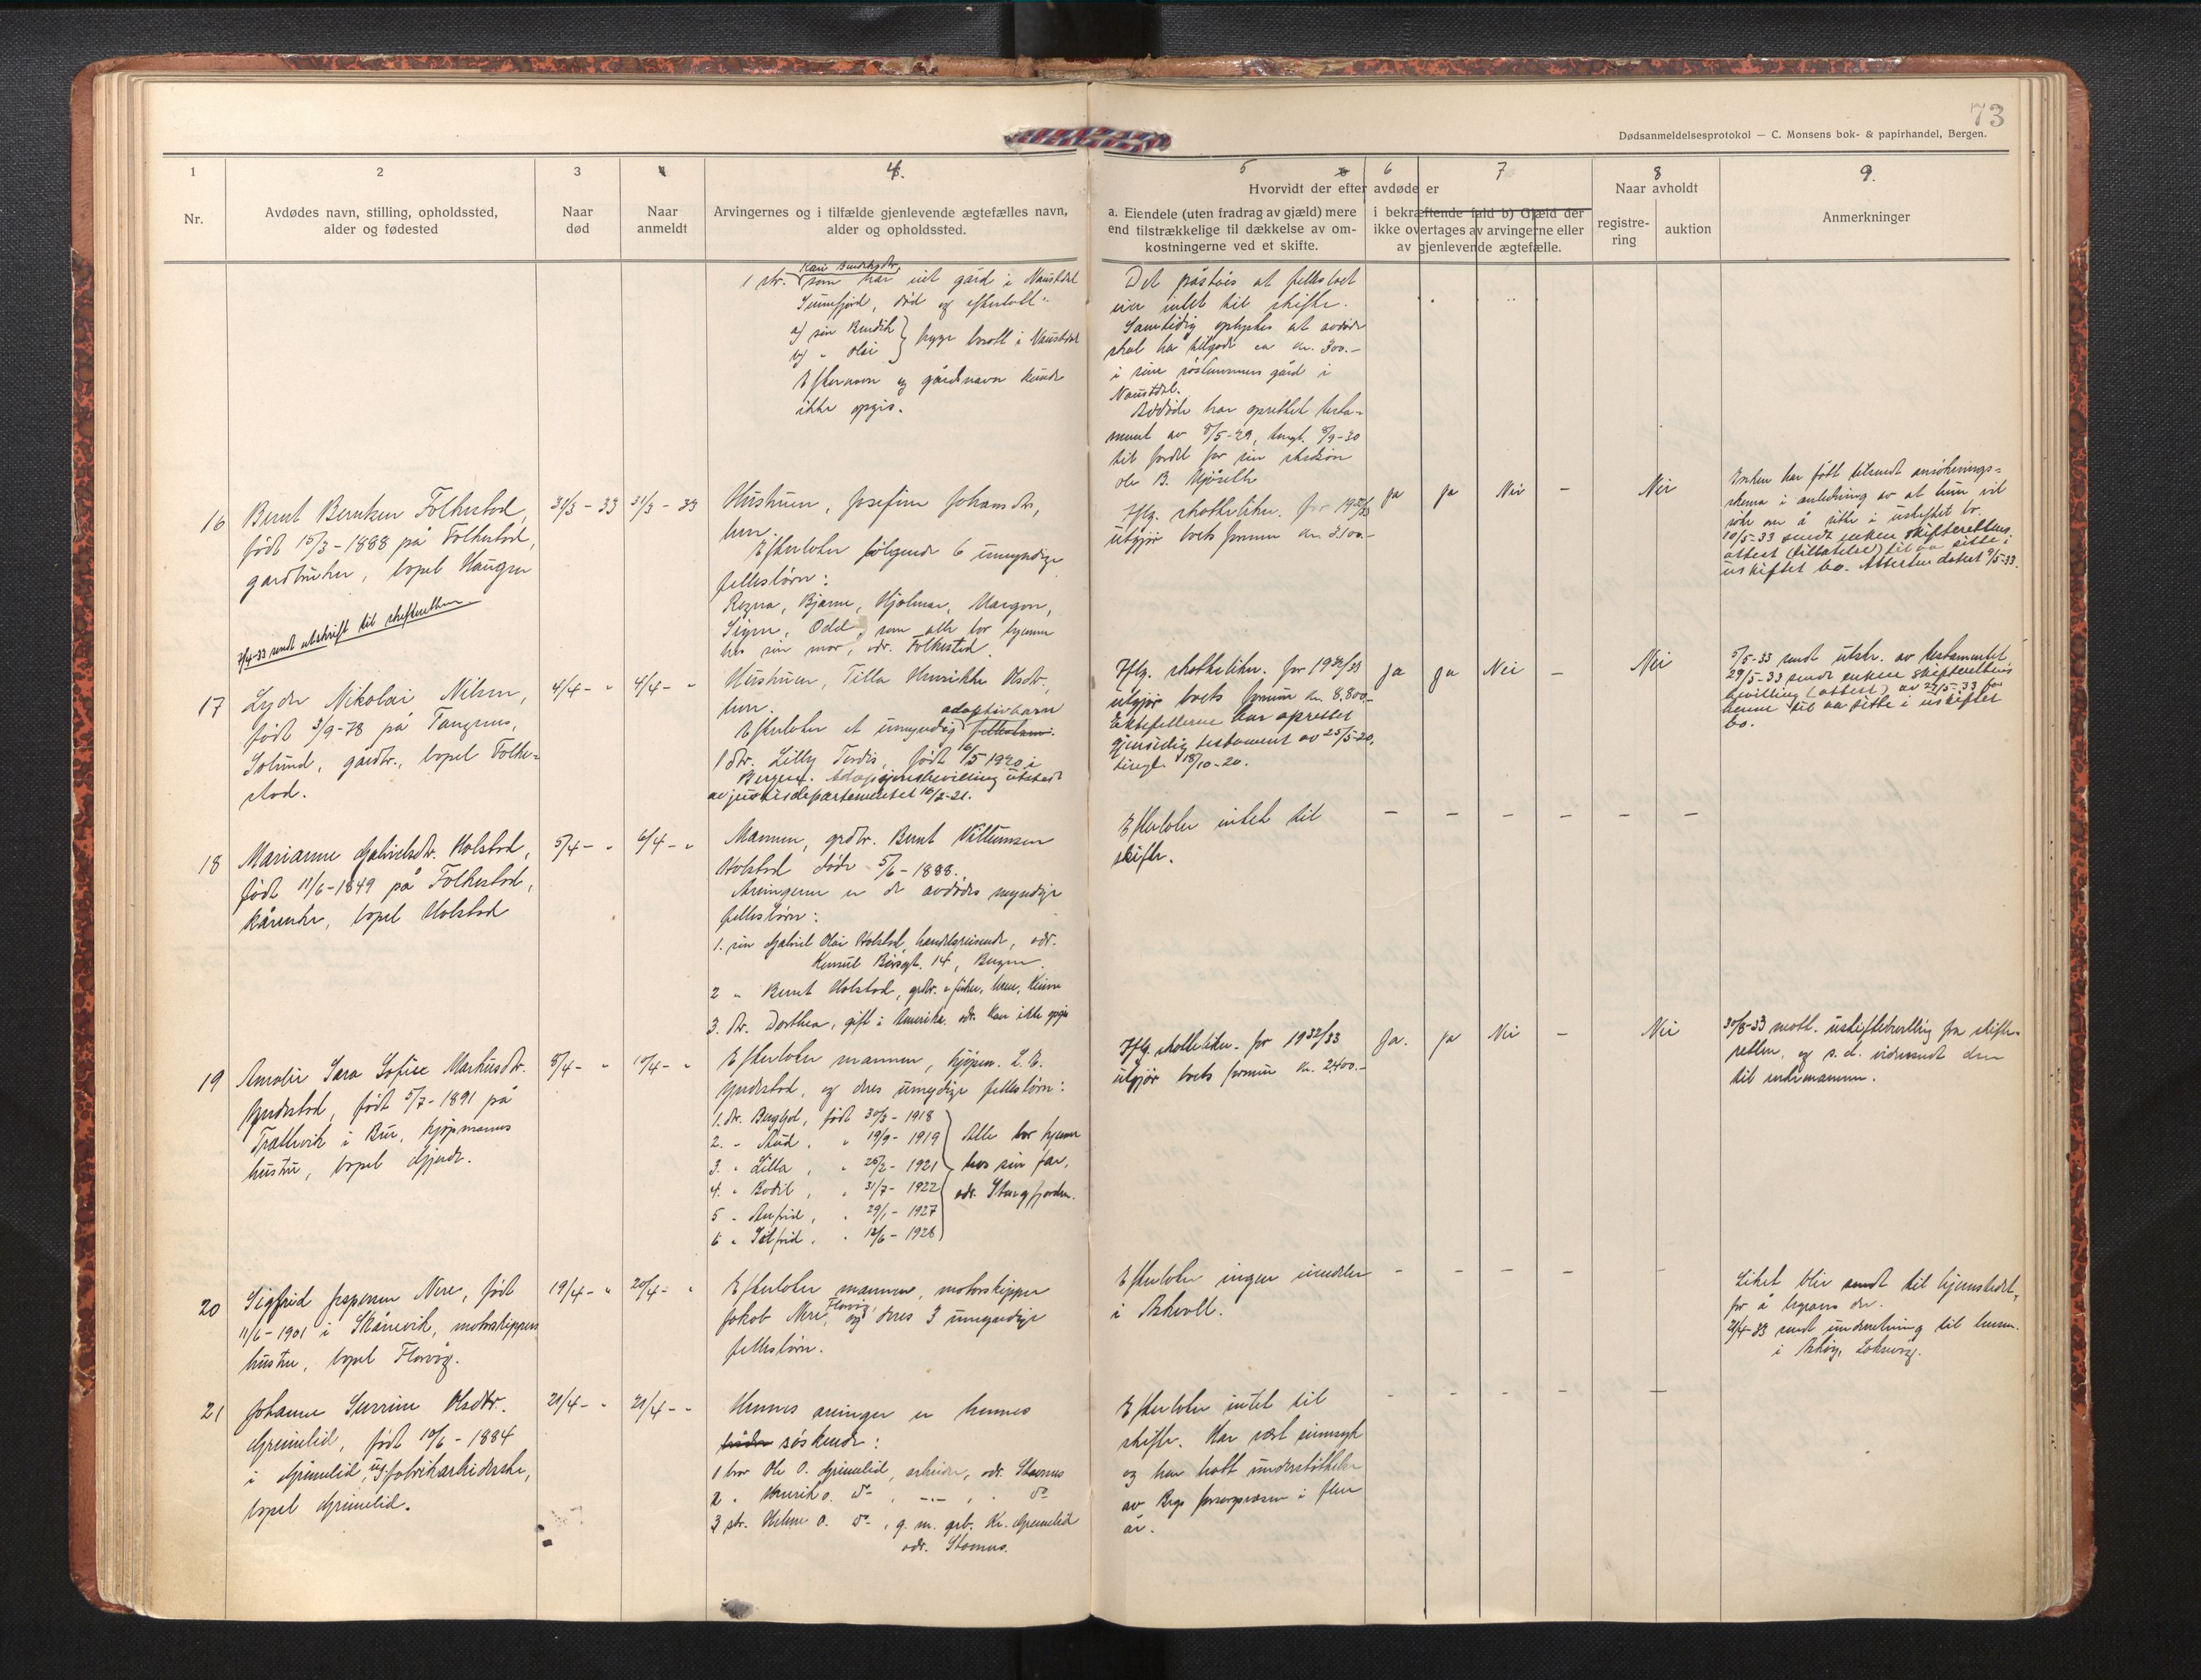 73
Dødsanmeldelsesprotokol — C. Monsens bok- & papirhandel, Bergen.
1
2
3
4.
5
6
7
8
9.
Nr.
Avdødes navn, stilling, opholdssted,
alder og fødested
Naar
død
Naar
anmeldt
Arvingernes og i tilfælde gjenlevende ægtefælles navn,
alder og opholdssted.
Hvorvidt der efter avdøde er
a. Eiendele (uten fradrag av gjæld) mere
end tilstrækkelige til dækkelse av om-
kostningerne ved et skifte.
i bekræftende fald b) Gjæld der
ikke overtages av arvingerne eller
av gjenlevende ægtefælle.
Naar avholdt
registre-
ring
auktion
Anmerkninger
1 str. (som har eiet gård i Naustdal
Sunnfjord, død og efterlatt:
a) søn Bendik
b) " Olai } begge bosatt i Naustdal
Efternavn og gårdsnavn kunde
ikke opgis.
Det påståes at fellesboet
eier intet til skifte.
Samtidig oplyses at avdøde
skal ha tilgode ca kr. 300.-
i sine gård i
Naustdal.
Avdøde har oprettet testa-
ment av 8/5-29, tingl. 8/9-30
til fordel for sin
Ole B.
16
Bernt Berntsen Folkestad,
født 15/3-1888 på Folkestad,
gardbruker, bopel Haugen
7/4-33 sendt utskrift til skifteretten
31/3 - 33
31/3 - 33
Hustruen, Josefine Johansdtr,
Efterlater følgende 6 umyndige
fellesbørn:
Ragna, Bjarne, Hjalmar, Margon,
Signe, Odd, som alle bor hjemme
hos sin mor, adr. Folkestad.
Iflg. skattelikn. for 1932/33
utgjør boets formue kr. 3.100.-
ja
ja
Nei
-
Nei
Enken har fått tilsendt ansøknings-
skema i anledning av at hun vil
søke om å sitte i uskiftet bo.
10/5-33 sendt enken skifterettens
attest (tillatelse) til aa sitte i
uskiftet bo. Attesten datert 9/5-33.
17
Lyder Nikolai Nilsen,
født 3/9-78 på
Solund, gardbr., bopel Folke-
stad.
4/4- "
4/4- "
Hustruen, Tilla Henrikke Olsdtr.,
adoptivbarn
Efterlater et umyndig fellesbarn.
1 dtr. Lilly Tordis, født 16/5 1920 i
Bergen. Adopsjonsbevilling utstedt
av justisdepartementet 16/2-21.
Iflg. skattelikn. for 1932/33
utgjør boets formue kr. 8.800.-
Ektefellerne har oprettet
gjensidig testament av 25/5-20,
tingl. 18/10-20.
Ja
Ja
Nei
-
Nei
5/5-33 sendt utskr. av testamentet
29/5-33 sendt enken skifterettens
bevilling (attest) av 27/5-33 for
henne til aa sitte i uskiftet
bo.
18
Marianne Gabrielsdtr. Holstad,
født 11/6-1849 på Folkestad,
kårenke, bopel Holstad
5/4- "
6/4- "
Mannen, grdbr. Bernt Villumsen
Holstad døde 5/6-1888.
Arvingerne er de avdødes myndige
fellesbørn:
1. søn Gabriel Olai Holstad, handelsreisende, adr.
Konsul Børsgt. 14, Bergen.
2 " Bernt Holstad, grdbr. & fisker, her, Kinn
3. dtr. Dorthea, gift i Amerika. adr. kan ikke opgis
Efterlater intet til
skifte.
- - - - - -
19
Amalie Sara Sofie Markusdtr.
Yndestad, født 5/7-1891 på
Trættevik i Bu, kjøpmanns
hustru, bopel Gjerde.
8/4- "
10/4- "
Efterlater mannen, kjøpm. L. E.
Yndestad, og deres umyndige fellesbørn:
1. dtr. Bergljot, født 30/3-1918
2. " Aud, " 19/9-1919
3. " Lilla, " 26/2-1921
4. " Bodil, " 31/7-1922
5 " Anfrid, " 29/1-1927
6 " Solfrid, " 12/6-1928
Alle bor hjemme
hos sin far,
adr. Stongfjorden.
Iflg. skattelikn. for 1932/33
utgjør boets formue kr. 2400.-
Ja.
ja
Nei
-
Nei
30/8-33 mott. uskiftebevilling fra skifte-
retten, og s. d. videresendt den
til enkemannen.
20
Sigfrid Jespersen Nere, født
11/6-1901 i Skånevik, motorskippers
hustru, bopel Florvåg.
19/4- "
20/4- "
Efterlater mannen, motorskipper
Jakob Nere, Florvåg, og deres 3 umyndige
fellesbørn.
Efterlater ingen eiendeler
i Askvoll.
- - - - -
Liket blir sendt til hjemstedet,
for å begraves der.
21/4-33 sendt underretning til lensm.
i Askøy,
21
Johanne Severine Olsdtr.
Grimelid, født 10/6-1884
i Grimelid, ug. fabrikarbeiderske,
bopel Grimelid.
21/4- "
21/4- "
Hennes arvinger er hennes
søskende:
1 bror Ole O. Grimelid, arbeider, adr. Stavenes
2 " Henrik O. do , -"- , " do
3 str. Helene O. do , g. m. grb. Kr. Grimelid
adr. Stavenes.
Efterlater intet til
skifte. Har vært sinnsyk
og har hatt understøttelse
av Bergs forsorgsvesen i flere
år.
- - - - -